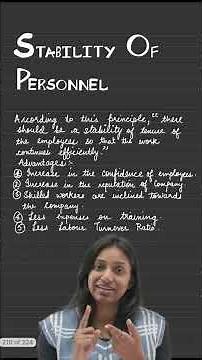 STABILITY OF
PERSONNEL
According to this principle, "there
should be a stability of tenure of
the employees so that the work
continues efficiently."
Advantages:-
① Increase in the confidence of employees.
② Increase in the reputation of Company.
③ Skilled workers are inclined towards
the Company.
④ Less expenses on training.
⑤ Less Labour Turnover Ratio.